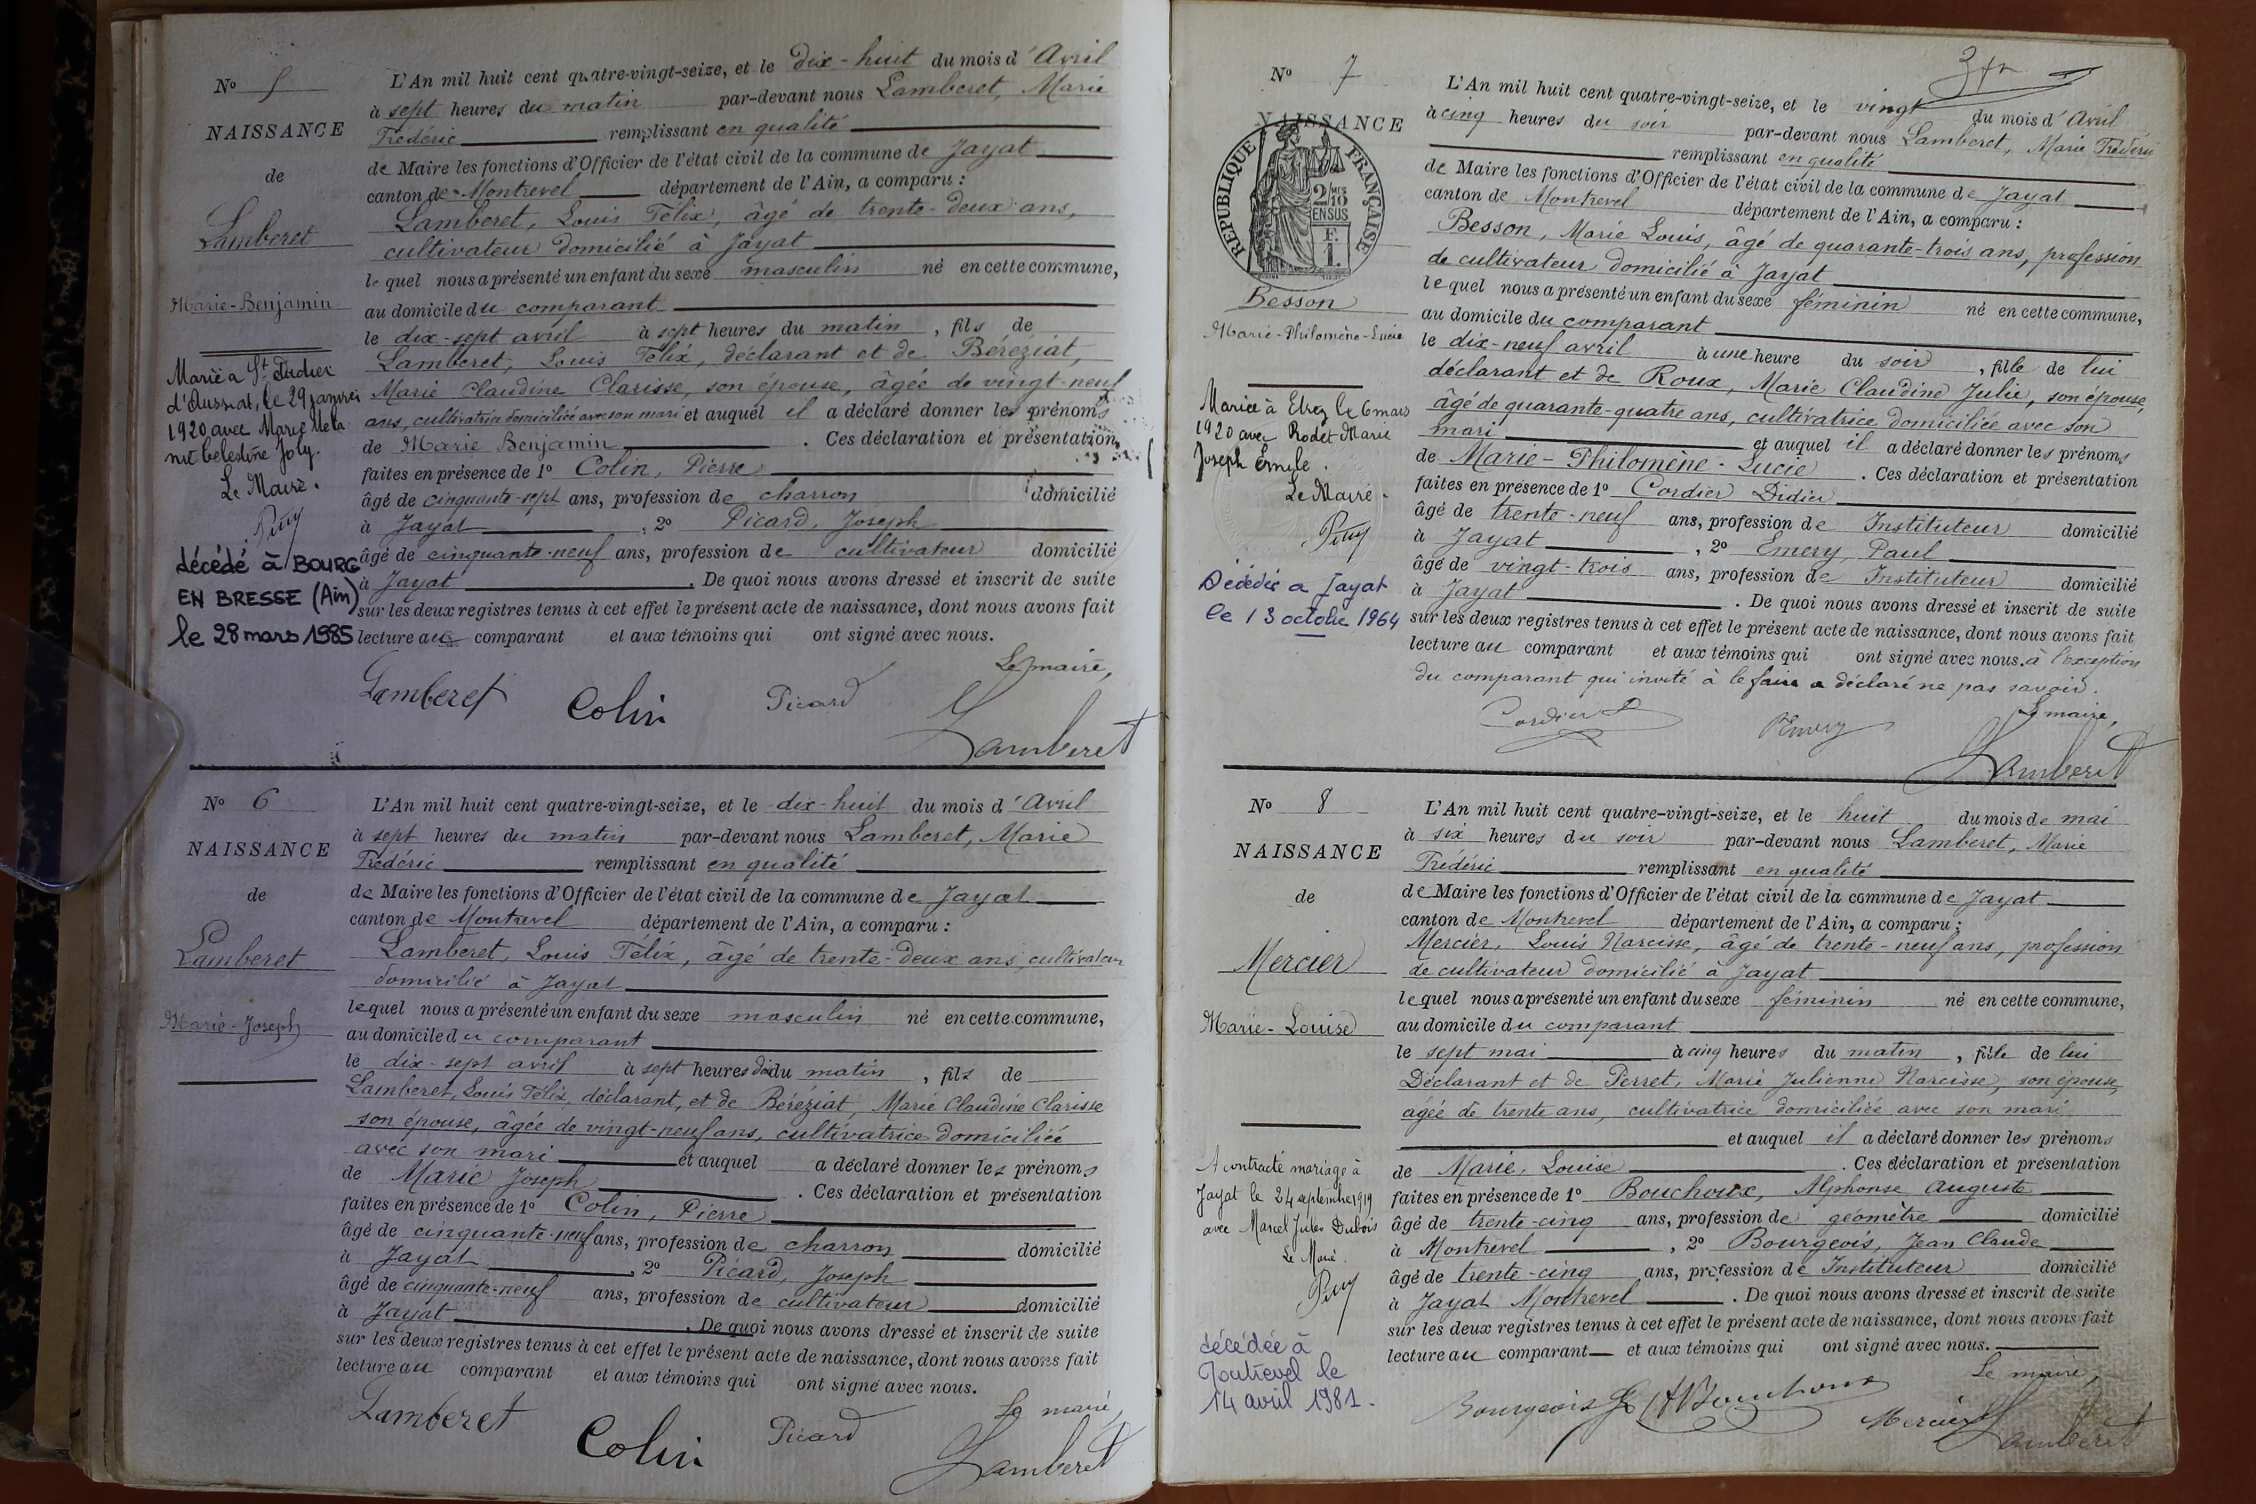 N° 5
NAISSANCE
de
Lamberet
Marie-Benjamin
Marié à St Didier
d'Aussiat, le 29 janvier
1920 avec Marie
Celestine Joly.
Le Maire.
Puy
décédé à BOURG
EN BRESSE (Ain)
le 28 mars 1985
L'An mil huit cent quatre-vingt-seize, et le dix-huit du mois d'Avril
à sept heures du matin par-devant nous Lamberet, Marie
Frédéric remplissant en qualité
de Maire les fonctions d'Officier de l'état civil de la commune de Jayat
canton de Montrevel département de l'Ain, a comparu :
Lamberet, Louis Félix, âgé de trente-deux ans,
cultivateur domicilié à Jayat
lequel nous a présenté un enfant du sexe masculin né en cette commune,
au domicile du comparant
le dix-sept avril à sept heures du matin, fils de
Lamberet, Louis Félix, déclarant et de Béréziat,
Marie Claudine Clarisse, son épouse, âgée de vingt-neuf
ans, cultivatrice domiciliée avec son mari et auquel il a déclaré donner les prénoms
de Marie Benjamin . Ces déclaration et présentation
faites en présence de 1° Colin, Pierre
âgé de cinquante-sept ans, profession de charron domicilié
à Jayat , 2° Picard, Joseph
âgé de cinquante-neuf ans, profession de cultivateur domicilié
à Jayat . De quoi nous avons dressé et inscrit de suite
sur les deux registres tenus à cet effet le présent acte de naissance, dont nous avons fait
lecture au comparant et aux témoins qui ont signé avec nous.
Le maire,
Lamberet Colin Picard Lamberet
N° 6
NAISSANCE
de
Lamberet
Marie-Joseph
L'An mil huit cent quatre-vingt-seize, et le dix-huit du mois d'Avril
à sept heures du matin par-devant nous Lamberet, Marie
Frédéric remplissant en qualité
de Maire les fonctions d'Officier de l'état civil de la commune de Jayat
canton de Montrevel département de l'Ain, a comparu :
Lamberet, Louis Félix, âgé de trente-deux ans, cultivateur
domicilié à Jayat
lequel nous a présenté un enfant du sexe masculin né en cette commune,
au domicile du comparant
le dix-sept avril à sept heures du matin, fils de
Lamberet, Louis Félix, déclarant, et de Béréziat, Marie Claudine Clarisse
son épouse, âgée de vingt-neuf ans, cultivatrice domiciliée
avec son mari et auquel a déclaré donner les prénoms
de Marie Joseph . Ces déclaration et présentation
faites en présence de 1° Colin, Pierre
âgé de cinquante-neuf ans, profession de charron domicilié
à Jayat , 2° Picard, Joseph
âgé de cinquante-neuf ans, profession de cultivateur domicilié
à Jayat . De quoi nous avons dressé et inscrit de suite
sur les deux registres tenus à cet effet le présent acte de naissance, dont nous avons fait
lecture au comparant et aux témoins qui ont signé avec nous.
Le maire,
Lamberet Colin Picard Lamberet
N° 7
NAISSANCE
REPUBLIQUE FRANÇAISE
2/10 EN SUS
F.
1.
Besson
Marie-Philomène-Lucie
Mariée à Etrez le 6 mars
1920 avec Rodet Marie
Joseph Emile.
Le Maire.
Puy
Décédée à Jayat
le 13 octobre 1964
L'An mil huit cent quatre-vingt-seize, et le vingt du mois d'Avril
à cinq heures du soir par-devant nous Lamberet, Marie Frédéric
remplissant en qualité
de Maire les fonctions d'Officier de l'état civil de la commune de Jayat
canton de Montrevel département de l'Ain, a comparu :
Besson, Marie Louis, âgé de quarante-trois ans, profession
de cultivateur domicilié à Jayat
lequel nous a présenté un enfant du sexe féminin né en cette commune,
au domicile du comparant
le dix-neuf avril à une heure du soir, fille de lui
déclarant et de Roux, Marie Claudine Julie, son épouse,
âgé de quarante-quatre ans, cultivatrice domiciliée avec son
mari et auquel il a déclaré donner les prénoms
de Marie-Philomène-Lucie . Ces déclaration et présentation
faites en présence de 1° Cordier Didier
âgé de trente-neuf ans, profession de Instituteur domicilié
à Jayat , 2° Emery, Paul
âgé de vingt-trois ans, profession de Instituteur domicilié
à Jayat . De quoi nous avons dressé et inscrit de suite
sur les deux registres tenus à cet effet le présent acte de naissance, dont nous avons fait
lecture au comparant et aux témoins qui ont signé avec nous. à l'exception
du comparant qui invité à le faire a déclaré ne pas savoir.
Le maire,
Cordier Emery Lamberet
N° 8
NAISSANCE
de
Mercier
Marie-Louise
A contracté mariage à
Jayat le 24 septembre 1919
avec Marcel Jules Dubois
Le Maire.
Puy
décédée à
Montrevel le
14 avril 1981.
L'An mil huit cent quatre-vingt-seize, et le huit du mois de mai
à six heures du soir par-devant nous Lamberet, Marie
Frédéric remplissant en qualité
de Maire les fonctions d'Officier de l'état civil de la commune de Jayat
canton de Montrevel département de l'Ain, a comparu :
Mercier, Louis Narcisse, âgé de trente-neuf ans, profession
de cultivateur domicilié à Jayat
lequel nous a présenté un enfant du sexe féminin né en cette commune,
au domicile du comparant
le sept mai à cinq heures du matin, fille de lui
Déclarant et de Perret, Marie Julienne Narcisse, son épouse,
âgée de trente ans, cultivatrice domiciliée avec son mari
et auquel il a déclaré donner les prénoms
de Marie, Louise . Ces déclaration et présentation
faites en présence de 1° Bouchoux, Alphonse Auguste
âgé de trente-cinq ans, profession de géomètre domicilié
à Montrevel , 2° Bourgeois, Jean Claude
âgé de trente-cinq ans, profession de Instituteur domicilié
à Jayat Montrevel . De quoi nous avons dressé et inscrit de suite
sur les deux registres tenus à cet effet le présent acte de naissance, dont nous avons fait
lecture au comparant et aux témoins qui ont signé avec nous.
Le maire,
Bourgeois Bouchoux Mercier Lamberet